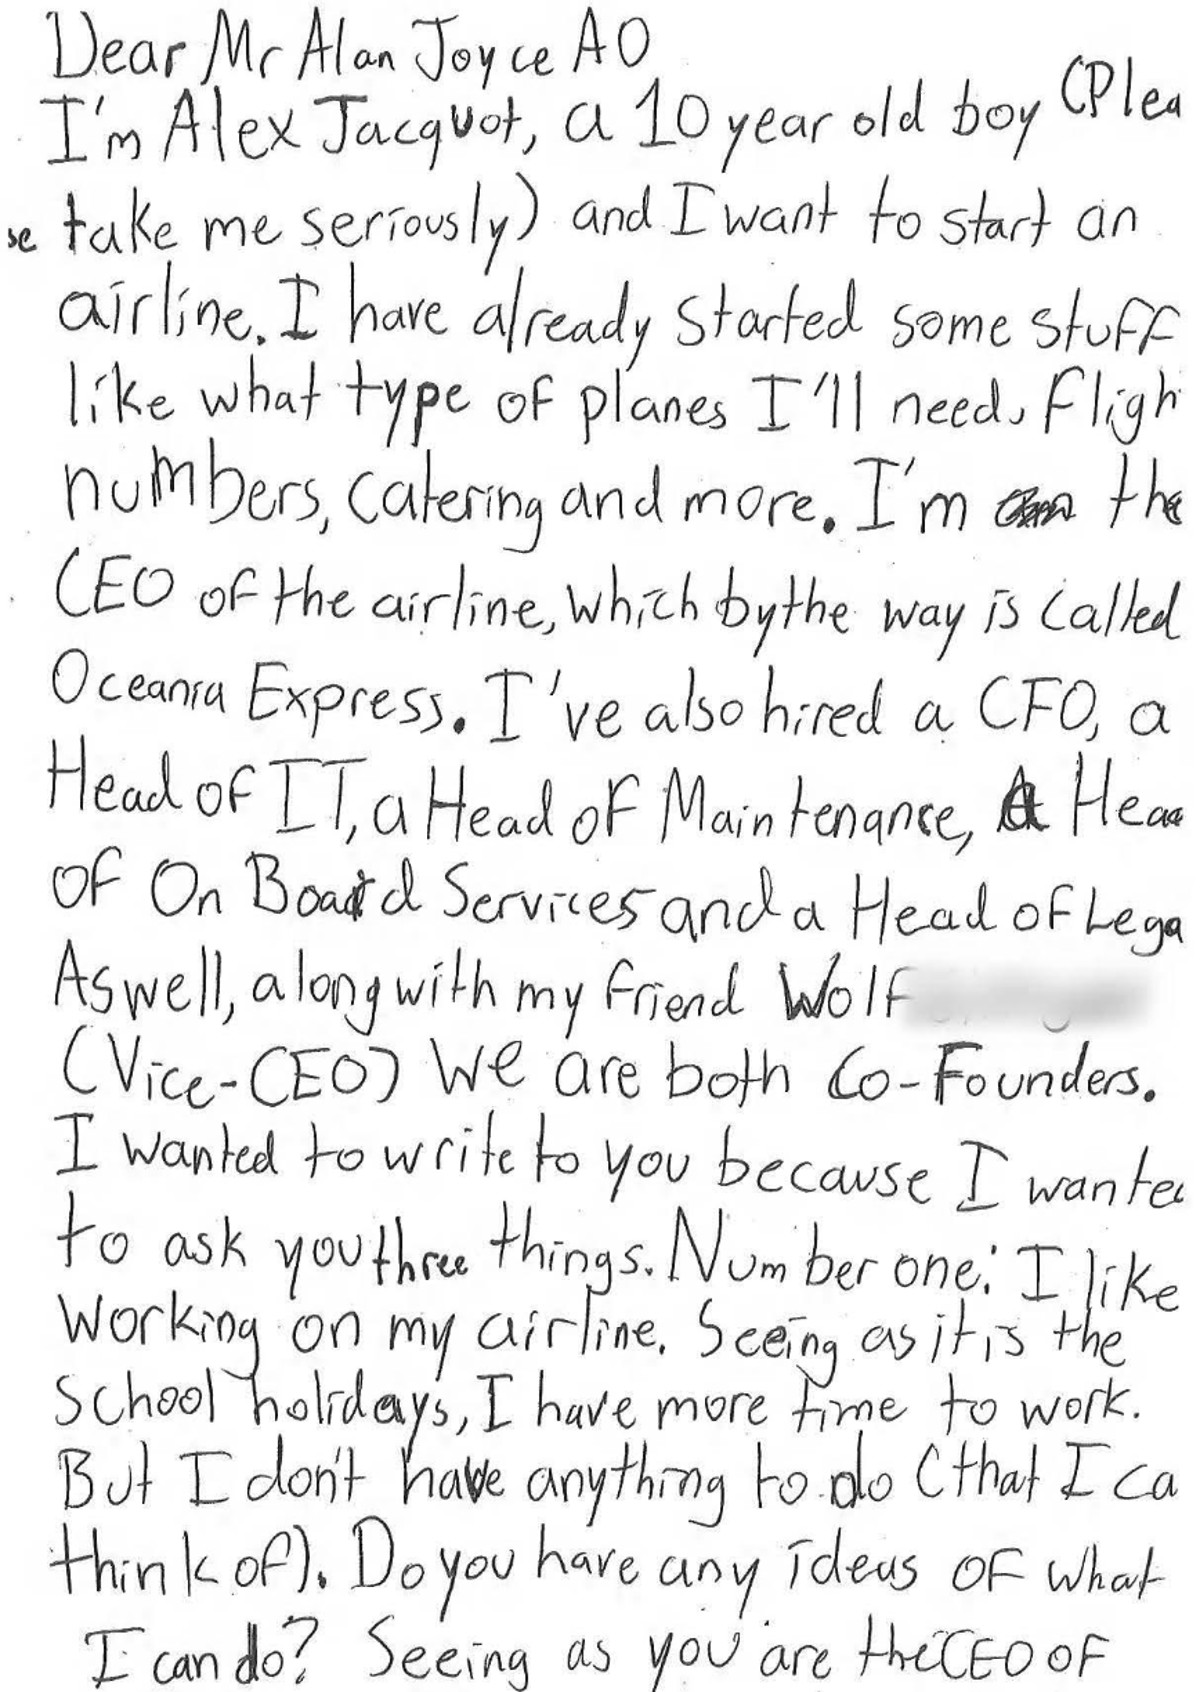 Dear Mr Alan Joyce AO
I'm Alex Jacquot, a 10 year old boy (Plea
se take me seriously) and I want to start an
airline. I have already started some stuff
like what type of planes I'll need, fligh
numbers, catering and more. I'm the
CEO of the airline, which by the way is called
Oceania Express. I've also hired a CFO, a
Head of IT, a Head of Maintenance, A Hea
of On Board Services and a Head of Lega
Aswell, along with my friend Wolf
(Vice-CEO) We are both Co-Founders.
I wanted to write to you because I wanted
to ask you three things. Number one: I like
Working on my airline. Seeing as it is the
School holidays, I have more time to work.
But I don't have anything to do (that I ca
think of). Do you have any ideas of what
I can do? Seeing as you are the CEO OF